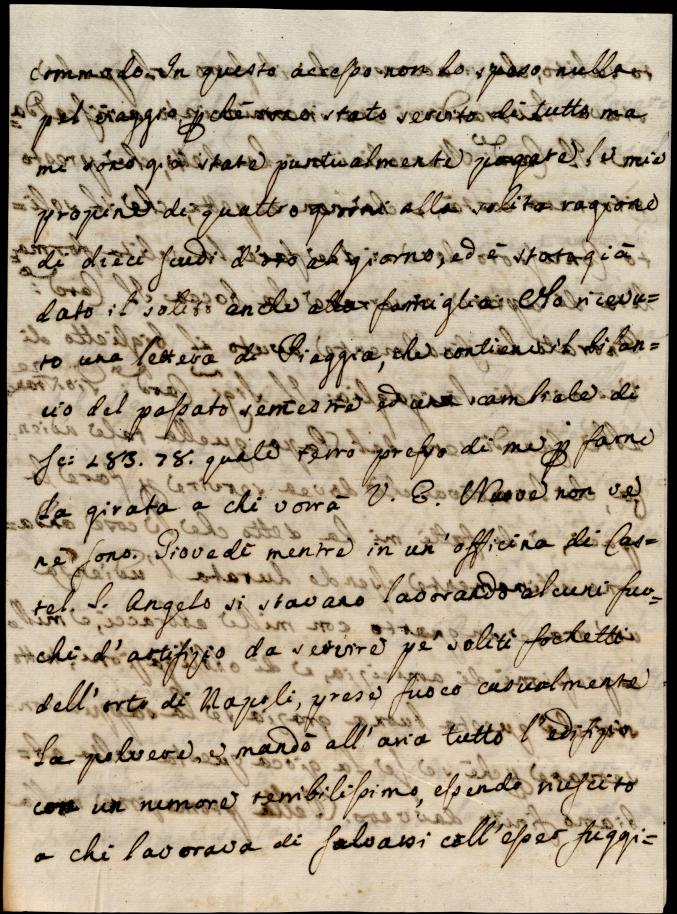 commodo. In questo accesso non ho speso, nulla
pel viaggio p chè sono stato servito di tutto ma
mi sono già state puntualmente pagate le mie
propine di quattro giorni alla solita ragione
di dieci scudi d'oro al giorno, ed è stato già
dato il solito anche alla famiglia. Ho ricevu=
to una lettera di Piaggia, che contiene il bilan=
cio del passato semestre ed una cambiale di
Sc: 183. 78. quale terrò presso di me p farne
la girata a chi vorrà V. E. Nuove non ve
ne sono. Giovedì mentre in un'officina di Cas=
tel S. Angelo si stavano lavorando alcuni fuo=
chi d'artifizio da servire pe soliti fochetti
dell'orto di Napoli, prese fuoco casualmente
la polvere, e mandò all'aria tutto l'edifizio
con un rumore terribilissimo, essendo riuscito
a chi lavorava di salvarsi coll'esser fuggi=